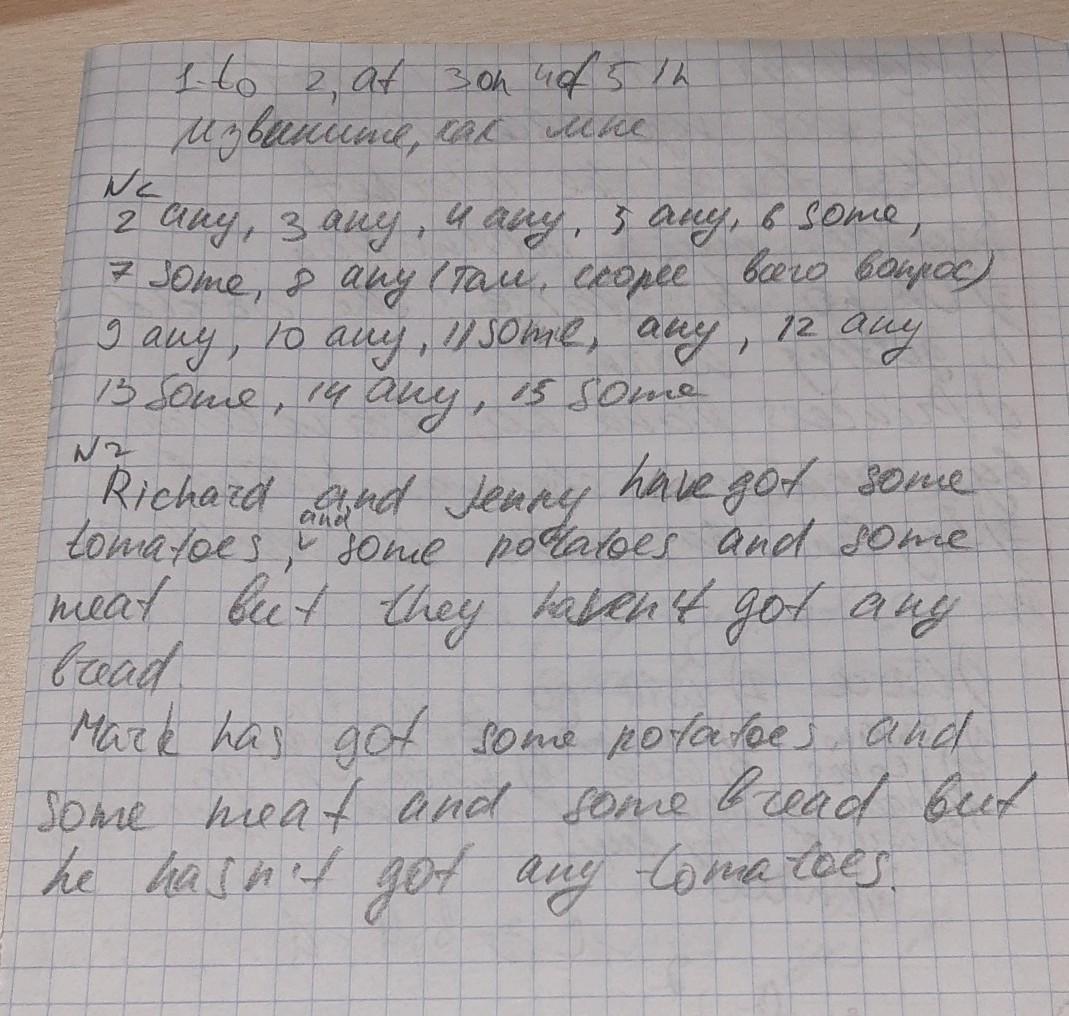 1. to 2, at 3 on 4 of 5 in
Извините, как мне
N2
2 any, 3 any, 4 any, 5 any, 6 some,
7 some, 8 any (там. скорее всего вопрос)
9 any, 10 any, 11 some, any, 12 any
13 some, 14 any, 15 some
N2
Richard and Jenny have got some
and
tomatoes, some potatoes and some
meat but they haven't got any
bread
Mark has got some potatoes and
some meat and some bread but
he hasn't got any tomatoes.